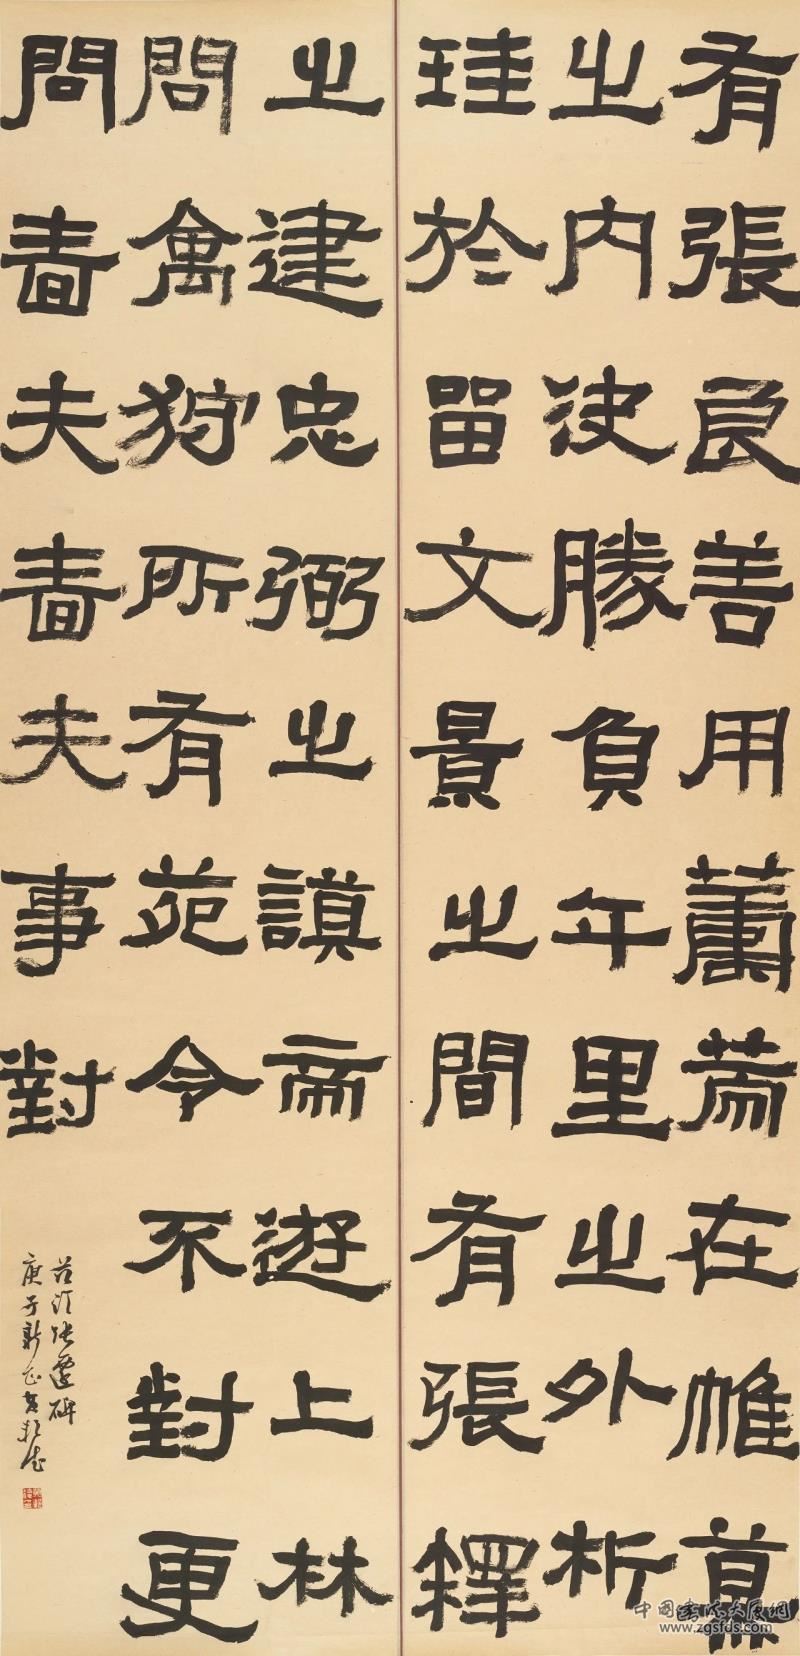 有張良善用籌策在帷幕
之內決勝負千里之外析
珪於留文景之間有張釋
之建忠弼之謨帝遊上林
問禽狩所有苑令不對更
問嗇夫嗇夫事對
节临张遷碑
庚子新正
www.zgsfds.com